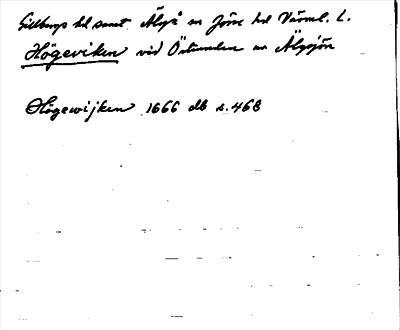 Gillbergs hd samt Älgå sn Jösse hd Värml. L.
Högeviken vid Östersidan av Älgsjön
Högewijken 1666 db s. 468